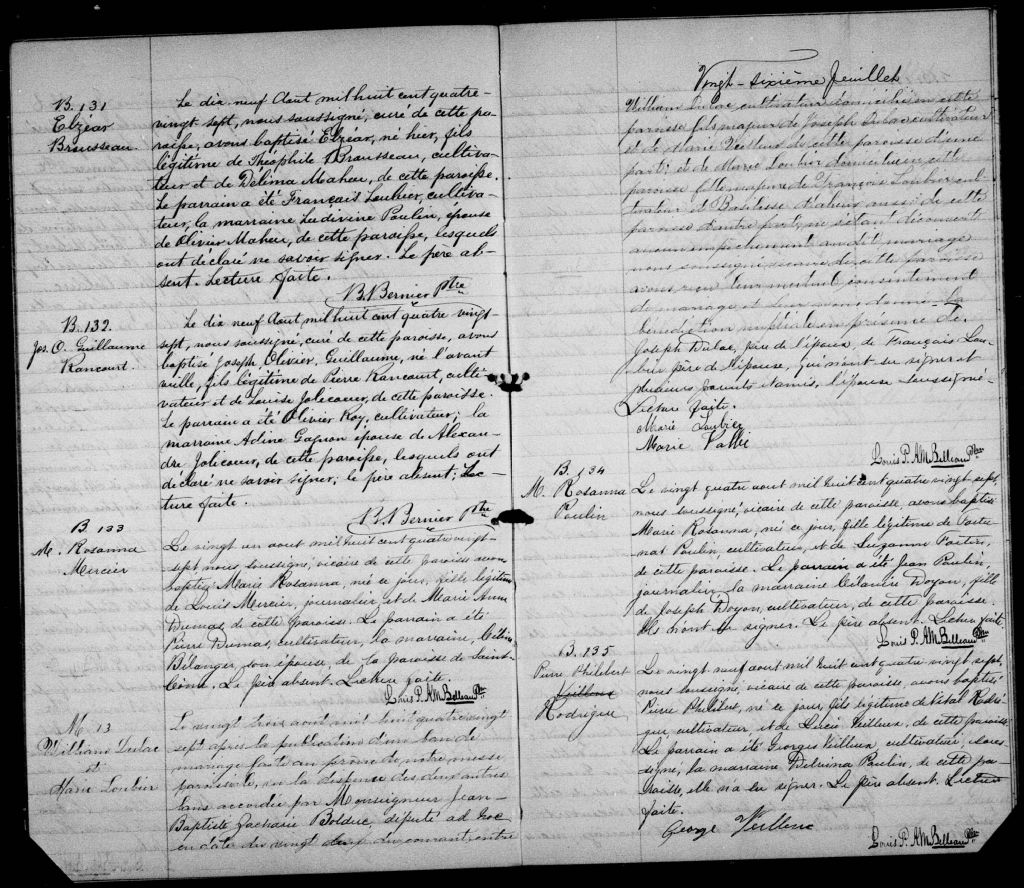 B. 131
Elzéar
Brousseau.
Le dix neuf Aout mil huit cent quatre-
vingt sept, nous soussigné, curé de cette pa-
roisse, avons baptisé Elzéar, né hier, fils
légitime de Théophile Brousseau, cultiva-
teur et de Délima Maheu, de cette paroisse.
Le parrain a été Français Louhier, cultiva-
teur, la marraine Ludivine Poulin, épouse
de Olivier Maheu, de cette paroisse, lesquels
ont declaré ne savoir signer. Le père ab-
sent. Lecture faite.
B. Bernier Ptre
B. 132.
Jos. O. Guillaume
Rancourt.
Le dix neuf Aout mil huit cent quatre vingt
sept, nous soussigné, curé de cette paroisse, avons
baptisé Joseph, Olivier, Guillaume, né l'avant
veille, fils légitime de Pierre Rancourt, culti-
vateur et de Louise Jolicoeur, de cette paroisse.
Le parrain a été Olivier Roy, cultivateur; la
marraine Adine Gagnon épouse de Alexan-
dre Jolicoeur, de cette paroisse, lesquels ont
déclaré ne savoir signer; le père absent; Lec-
ture faite.
B. Bernier Ptre
B 133
M. Rosanna
Mercier
Le vingt un aout mil huit cent quatre vingt-
sept, nous, soussigné, vicaire de cette paroisse avons
baptisé Marie Rosanna, née ce jour, fille légitime
de Louis Mercier, journalier, et de Marie Anne
Dumas de cette paroisse. Le parrain a été
Pierre Dumas, cultivateur, la marraine,
Bélanger, son épouse, de la paroisse de Saint-
Come. Le père absent. Lecture faite.
Louis P. A. M. Belleau Ptre
M 13
William Dulac
et
Marie Loubier
Le vingt trois aout mil huit quatre vingt
sept après la publication d'un ban de
mariage faite au prône de notre messe
paroissiale, vu la dispense des deux autres
bans accordée par Monseigneur Jean-
Baptiste Zacharie Bolduc, député ad hoc
en date du vingt du courant, entre
Vingt-sixième feuillet
William Dulac cultivateur domicilié en cette
paroisse fils majeur de Joseph Dulac cultivateur
et de Marie Veilleux de cette paroisse d'une
part; et de Marie Loubier domiciliée en cette
paroisse fille majeure de François Loubier cul-
tivateur et Balilesse Maheu aussi de cette
paroisse d'autre part; ne s'étant découvert
aucun empêchement au dit mariage
nous soussigné vicaire de cette paroisse
avons reçu leur mutuel consentement
de mariage et leur avons donné la
bénédiction nuptiale en présence de
Joseph Dulac, père de l'époux, de Français Lou-
bier père de l'épouse, qui n'ont su signer et
plusieurs parents & amis. L'épouse soussigné-
Lecture faite.
Marie Loubier
Marie Vallée
Louis P. A. M. Belleau Ptre
B. 134
M. Rosanna
Poulin
Le vingt quatre aout mil huit cent quatre vingt sept,
nous soussigné, vicaire de cette paroisse, avons baptisé
Marie Rosanna, née ce jour, fille légitime de Fortu-
nat Poulin, cultivateur, et de Suzanne Fortin,
de cette paroisse. Le parrain a été Jean Poulin,
journalier, la marraine Célanire Doyon, fille
de Joseph Doyon, cultivateur, de cette paroisse.
Ils n'ont su signer. Le père absent. Lecture faite.
Louis P. A. M. Belleau Ptre
B. 135
Pierre Philibert
Veilleux
Rodrigue
Le vingt neuf aout mil huit cent quatre vingt sept,
nous soussigné, vicaire de cette paroisse, avons baptisé
Pierre Philibert, né ce jour, fils légitime de Vital Rodri-
gue, cultivateur, et de Lucie Veilleux, de cette paroisse.
Le parrain a été Georges Veilleux cultivateur, sous-
signé, la marraine Delvina Poulin, de cette pa-
roisse, elle n'a su signer. Le père absent. Lecture
faite.
George Veilleux
Louis P. A. M. Belleau Ptre